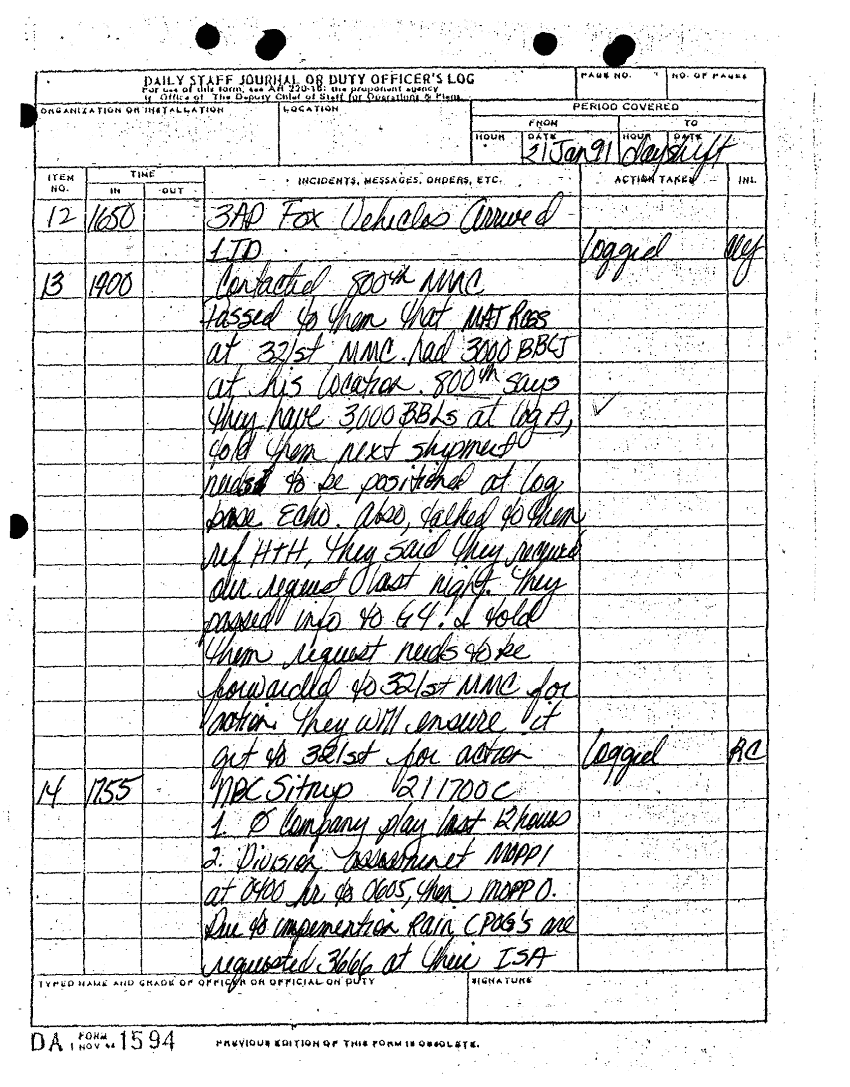 DAILY STAFF JOURNAL OR DUTY OFFICER'S LOG
For use of this form, see AR 220-15; the proponent agency
is Office of The Deputy Chief of Staff for Operations & Plans.
PAGE NO.
NO. OF PAGES
ORGANIZATION OR INSTALLATION
LOCATION
PERIOD COVERED
FROM
TO
HOUR
DATE
HOUR
DATE
21 Jan 91
dayshift
ITEM NO.
TIME
IN
OUT
INCIDENTS, MESSAGES, ORDERS, ETC.
ACTION TAKEN
INL
12 1650 3AD Fox Vehicles Arrived
1ID Logged
13 1900 Contacted 800th MMC
Passed to them that MAJ Ross
at 321st MMC had 3000 BBLS
at his location. 800th says
they have 3,000 BBLs at log A, ✓
told them next shipment
needs to be positioned at log
base Echo. Also, talked to them
ref H+H, they said they
our request last night. They
passed info to G4! I told
them request needs to be
forwarded to 321st MMC for
action. They will ensure it
get to 321st for action Logged RC
14 1755 NBC Sitrep 211700C
1. Ø Company play last 12 hours
2. Division MOPP 1
at 0400 hr to 0605, then MOPP 0.
Due to Rain, CPOG's are
requested 3666 at their ISA
TYPED NAME AND GRADE OF OFFICER OR OFFICIAL ON DUTY
SIGNATURE
DA FORM 1 NOV 1594
PREVIOUS EDITION OF THIS FORM IS OBSOLETE.